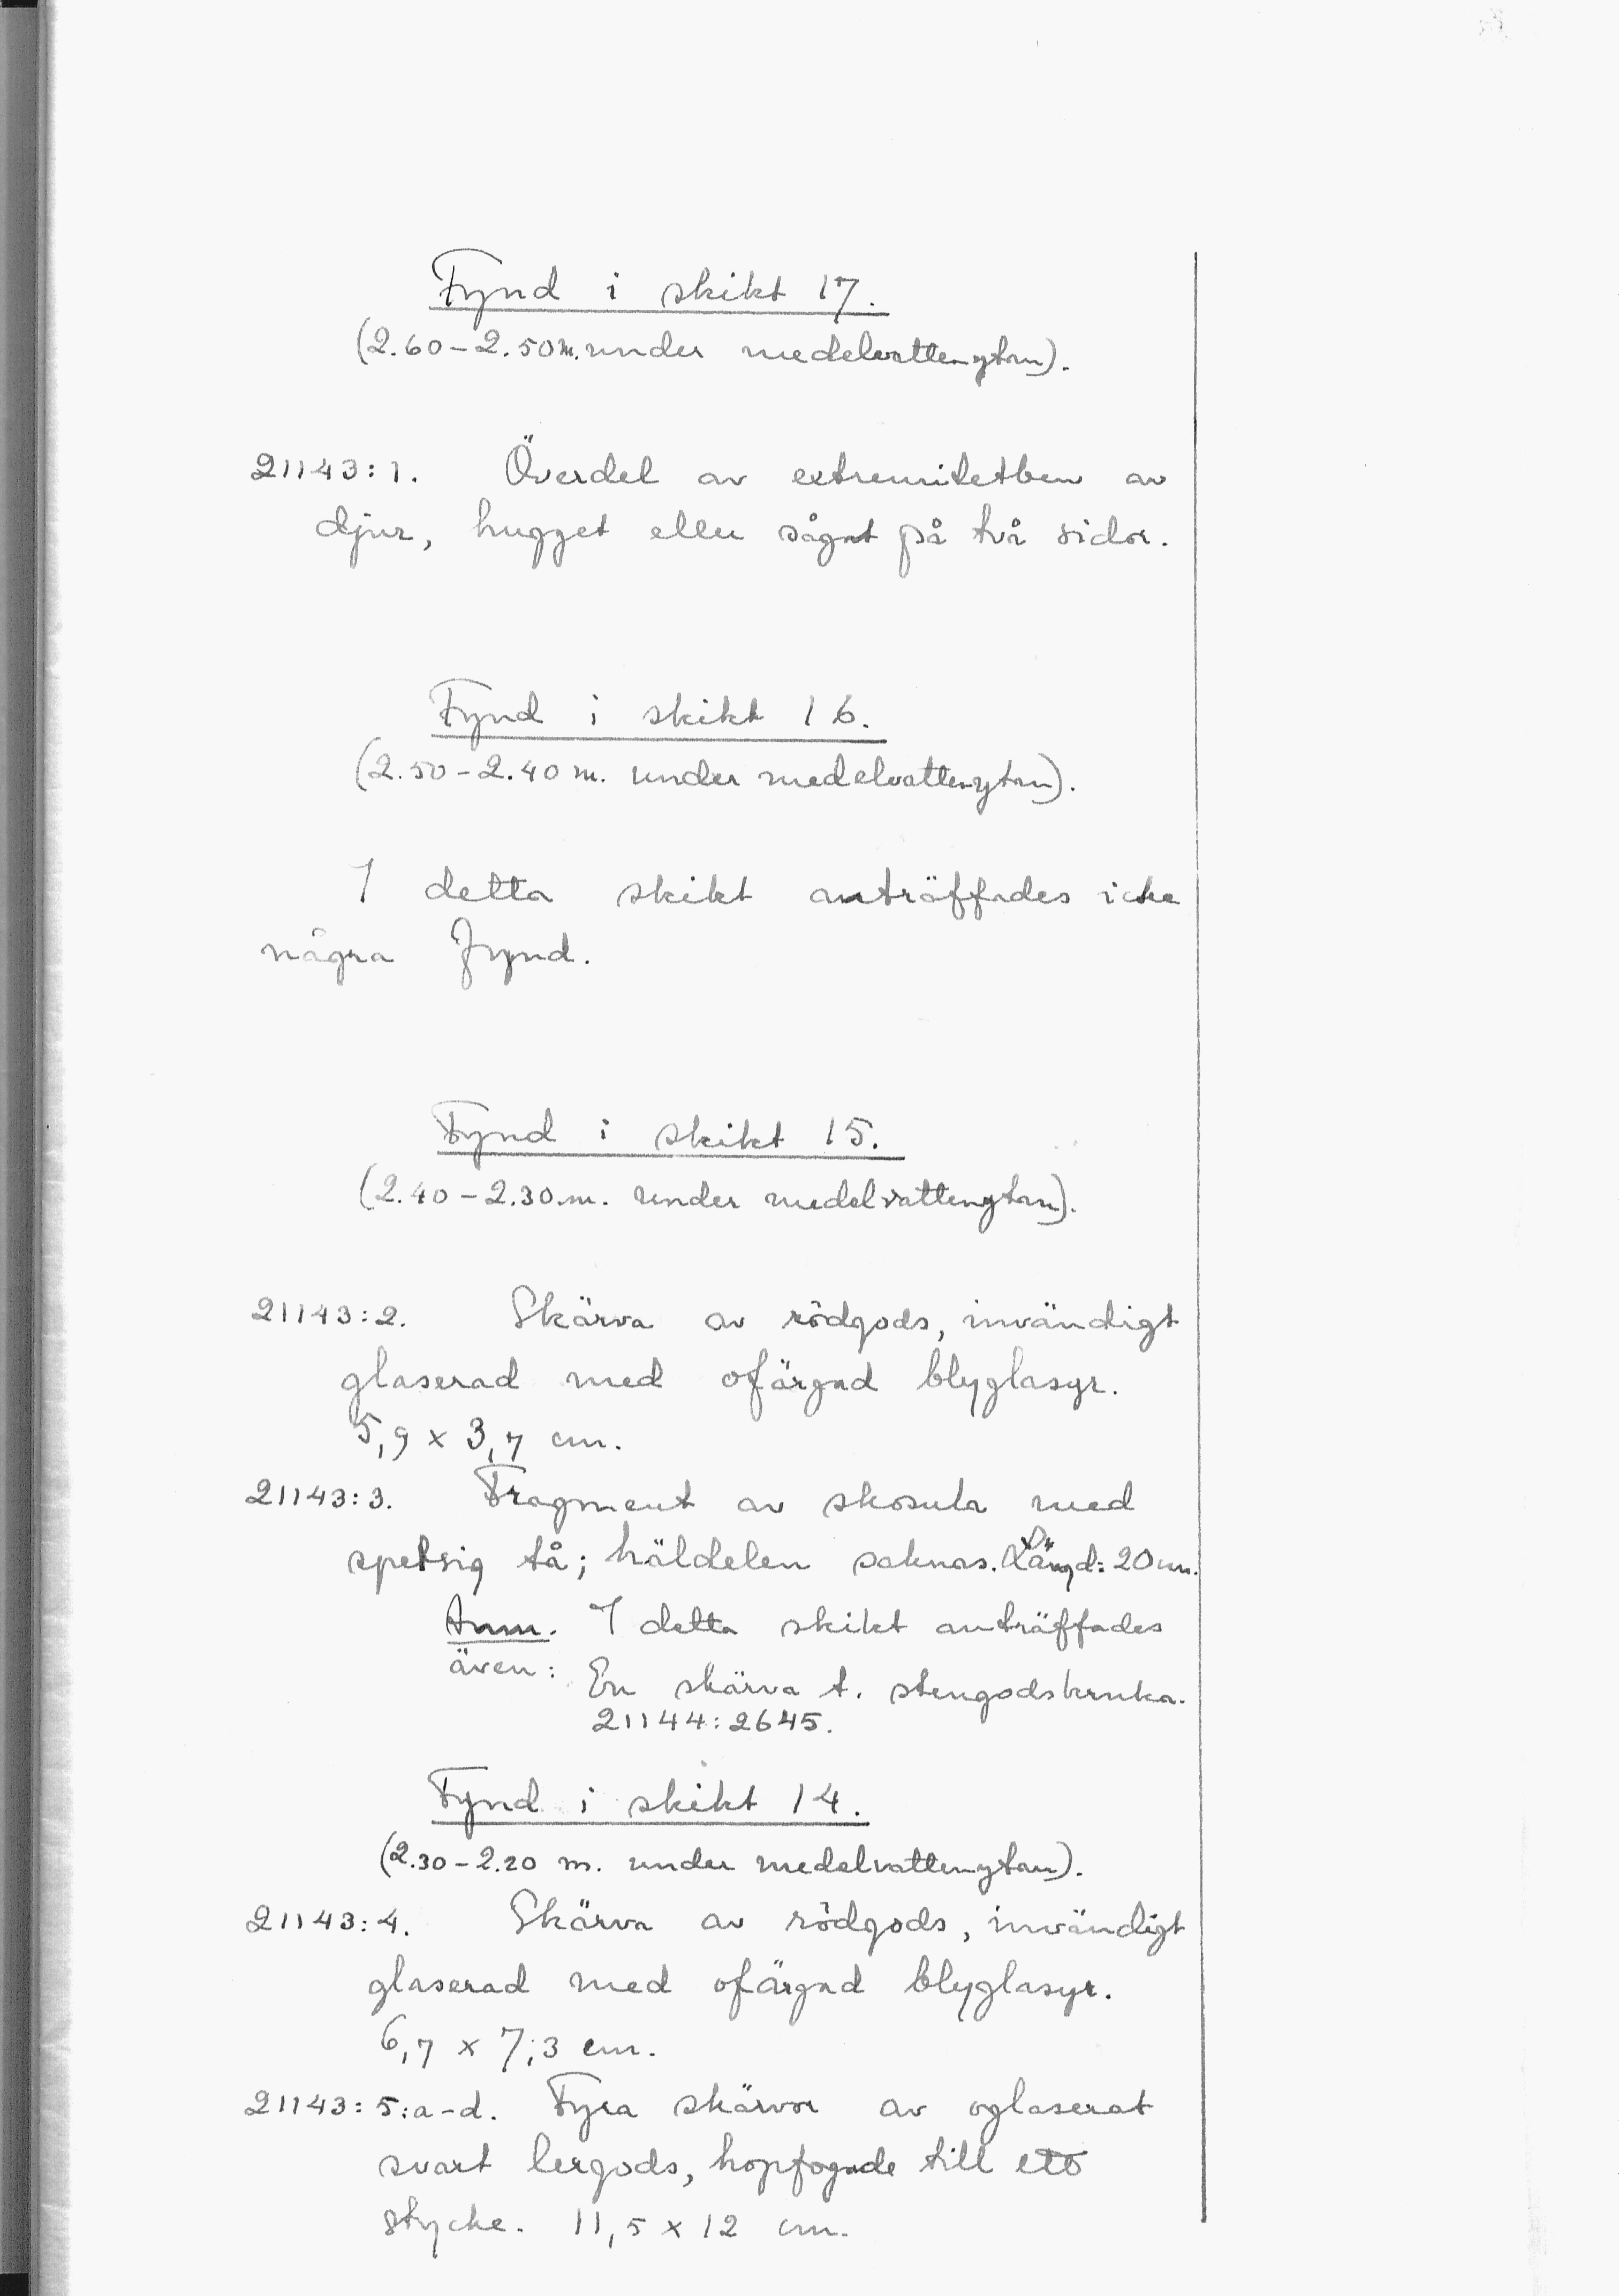 Fynd i skikt 17.
(2.60-2.50 m. under medelvattenytan).
21143:1. Överdel av extremitetben av
djur, hugget eller sågat på två sidor.
Fynd i skikt 16.
(2.50-2.40 m. under medelvattenytan).
I detta skikt anträffades icke
några fynd.
Fynd i skikt 15.
(2.40-2.30 m. under medelvattenytan).
21143:2. Skärva av rödgods, invändigt
glaserad med ofärgad blyglasyr.
5,9 x 3,7 cm.
21143:3. Fragment av skosula med
spetsig tå; häldelen saknas. Längd: 20 cm.
Anm. I detta skikt anträffades
även:
En skärva t. stengodskruka.
21144:2645.
Fynd i skikt 14.
(2.30-2.20 m. under medelvattenytan).
21143:4. Skärva av rödgods, invändigt
glaserad med ofärgad blyglasyr.
6,7 x 7,3 cm.
21143:5:a-d. Fyra skärvor av oglaserat
svart lergods, hopfogade till ett
stycke. 11,5 x 12 cm.